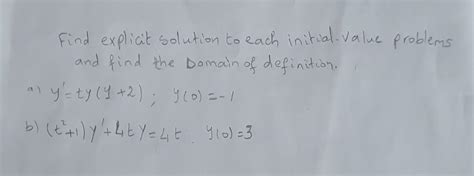 Find explicit solution to each initial-value problems
and find the Domain of definition.
a) y' = ty(y+2) ; y(0) = -1
b) (t²+1) y' + 4t y = 4t . y(0) = 3